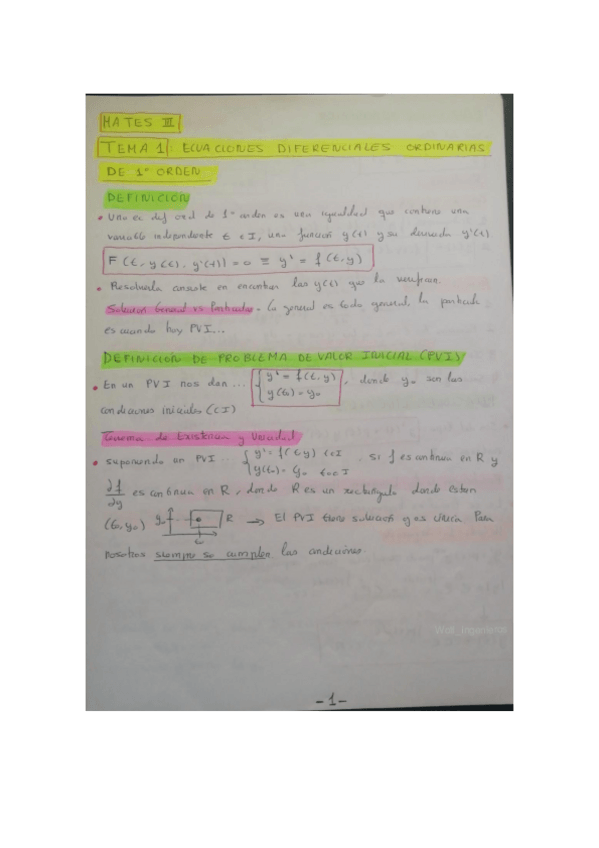 MATES III
TEMA 1: ECUACIONES DIFERENCIALES ORDINARIAS
DE 1er ORDEN
DEFINICIÓN
• Una ec dif ord de 1er orden es una igualdad que contiene una
variable independiente t ∈ I, una función y(t) y su derivada y'(t)
F(t, y(t), y'(t)) = 0 ≡ y' = f(t, y)
• Resolverla consiste en encontrar las y(t) que la verifican.
Solución General vs Particular. La general es todo general, la particular
es cuando hay PVI...
DEFINICIÓN DE PROBLEMA DE VALOR INICIAL (PVI)
• En un PVI nos dan ... { y' = f(t, y) , donde y₀ son las
y(t₀) = y₀
condiciones iniciales (CI)
Teorema de Existencia y Unicidad
• suponiendo un PVI { y' = f(t, y) t∈I , si f es continua en R y
y(t₀) = y₀ t₀∈I
∂f/∂y es continua en R, donde R es un rectángulo donde estan
(t₀, y₀) y₀ R → El PVI tiene solución y es única. Para
t₀
nosotros siempre se cumplen las condiciones.
Wolf_Ingenieros
-1-